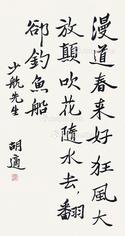 漫道春来好狂風大
放顛吹花隨水去翻
卻釣魚船
少航先生
胡適